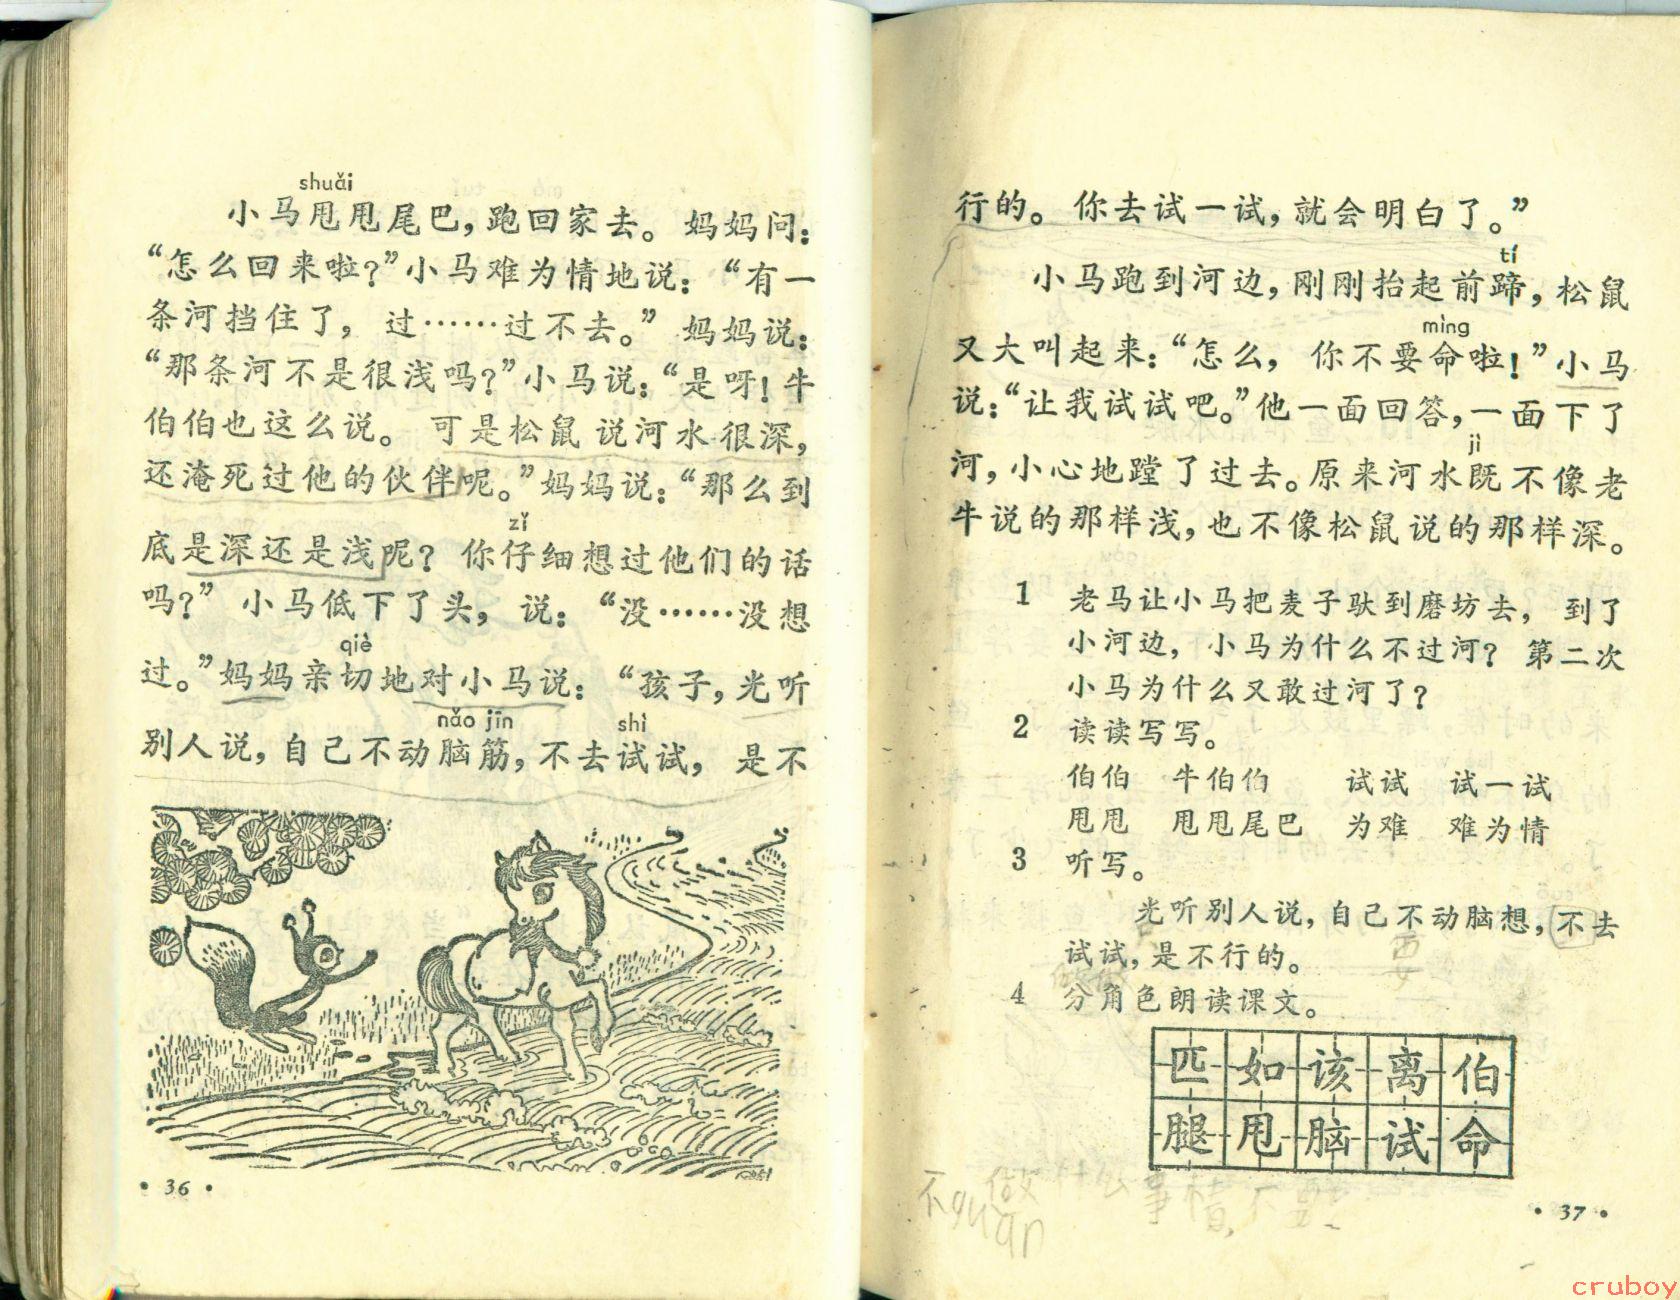 shuǎi
小马甩甩尾巴，跑回家去。妈妈问：
“怎么回来啦？”小马难为情地说：“有一
条河挡住了，过……过不去。”妈妈说：
“那条河不是很浅吗？”小马说：“是呀！牛
伯伯也这么说。可是松鼠说河水很深，
还淹死过他的伙伴呢。”妈妈说：“那么到
zǐ
底是深还是浅呢？你仔细想过他们的话
吗？”小马低下了头，说：“没……没想
qiè
过。”妈妈亲切地对小马说：“孩子，光听
nǎo jīn shì
别人说，自己不动脑筋，不去试试，是不
· 36 ·
行的。你去试一试，就会明白了。”
tí
小马跑到河边，刚刚抬起前蹄，松鼠
mìng
又大叫起来：“怎么，你不要命啦！”小马
说：“让我试试吧。”他一面回答，一面下了
jì
河，小心地蹚了过去。原来河水既不像老
牛说的那样浅，也不像松鼠说的那样深。
1 老马让小马把麦子驮到磨坊去，到了
小河边，小马为什么不过河？第二次
小马为什么又敢过河了？
2 读读写写。
伯伯 牛伯伯 试试 试一试
甩甩 甩甩尾巴 为难 难为情
3 听写。
光听别人说，自己不动脑想，不去
试试，是不行的。
4 分角色朗读课文。
匹如该离伯
腿甩脑试命
不guǎn做什么事情，不要
· 37 ·
cruboy